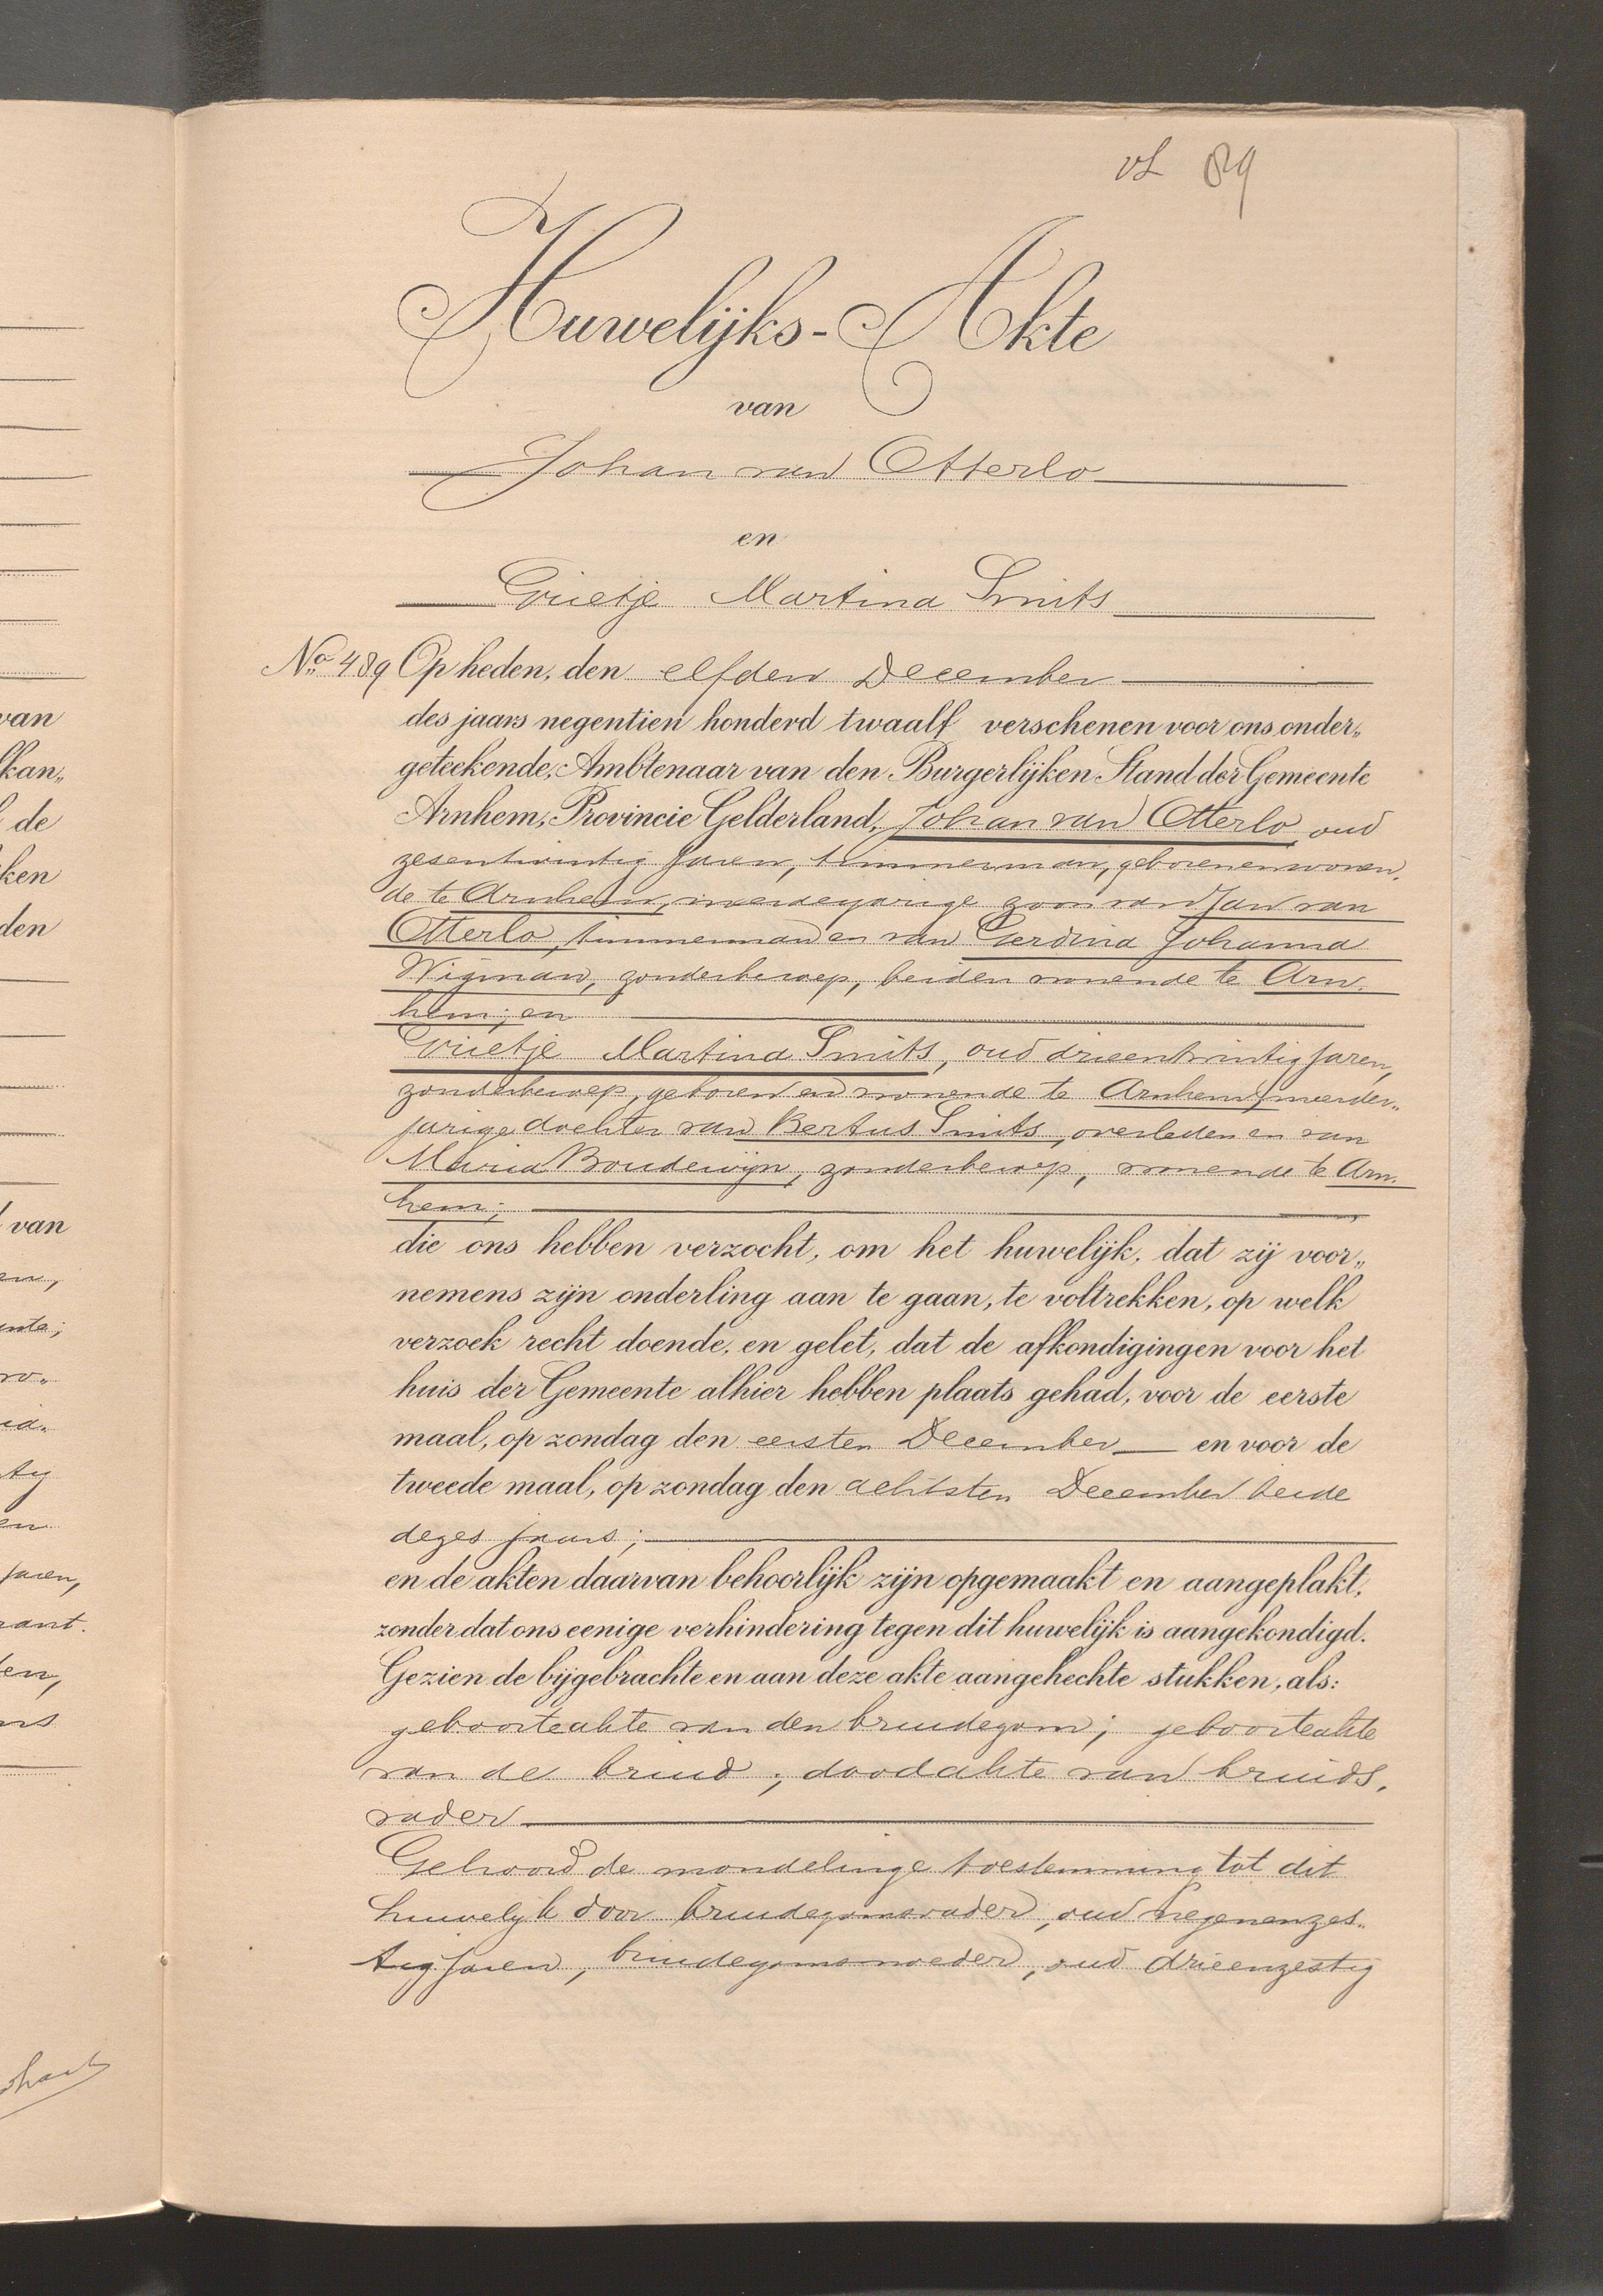 vL 89
Huwelijks-Akte
van
Johan van Otterlo
en
Grietje Martina Smits
No 489 Op heden, den elfden December
des jaars negentien honderd twaalf verschenen voor ons onder„
geteekende, Ambtenaar van den Burgerlijken Stand der Gemeente
Arnhem, Provincie Gelderland, Johan van Otterlo, oud
zesentwintig jaren, timmerman, geboren en wonen.
de te Arnhem, meerderjarige zoon van Jan van
Otterlo, timmerman en van Gerdina Johanna
Wigman, zonder beroep, beiden wonende te Arn.
hem; en
Grietje Martina Smits, oud drieentwintig jaren,
zonder beroep, geboren en wonende te Arnhem, meerder„
jarige dochter van Bertus Smits, overleden en van
Maria Boudewijn, zonder beroep, wonende te Arn.
hem;
die ons hebben verzocht, om het huwelijk, dat zij voor„
nemens zijn onderling aan te gaan, te voltrekken, op welk
verzoek recht doende, en gelet, dat de afkondigingen voor het
huis der Gemeente alhier hebben plaats gehad, voor de eerste
maal, op zondag den eersten December en voor de
tweede maal, op zondag den achtsten December beide
dezes jaars;
en de akten daarvan behoorlijk zijn opgemaakt en aangeplakt,
zonder dat ons eenige verhindering tegen dit huwelijk is aangekondigd.
Gezien de bijgebrachte en aan deze akte aangehechte stukken, als:
geboorteakte van den bruidegom; geboorteakte
van de bruid; doodakte van bruids.
vader
Gehoord de mondelinge toestemming tot dit
huwelijk door bruidegomsvader, oud negenenzes„
tig jaren, bruidegomsmoeder, oud drieenzestig